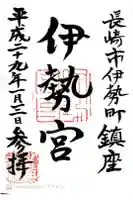 長崎市伊勢町鎮座
伊勢宮
平成二十九年一月三日参拝